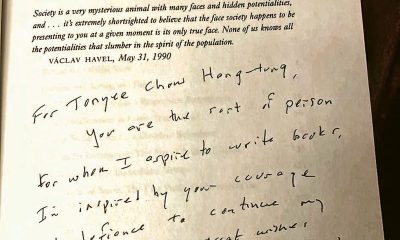 Society is a very mysterious animal with many faces and hidden potentialities,
and . . . it's extremely shortsighted to believe that the face society happens to be
presenting to you at a given moment is its only true face. None of us knows all
the potentialities that slumber in the spirit of the population.
VÁCLAV HAVEL, May 31, 1990
For Tonyee Chow Hang-tung,
You are the sort of person
for whom I aspire to write books,
I'm inspired by your courage
defiance to continue my
great wishes,